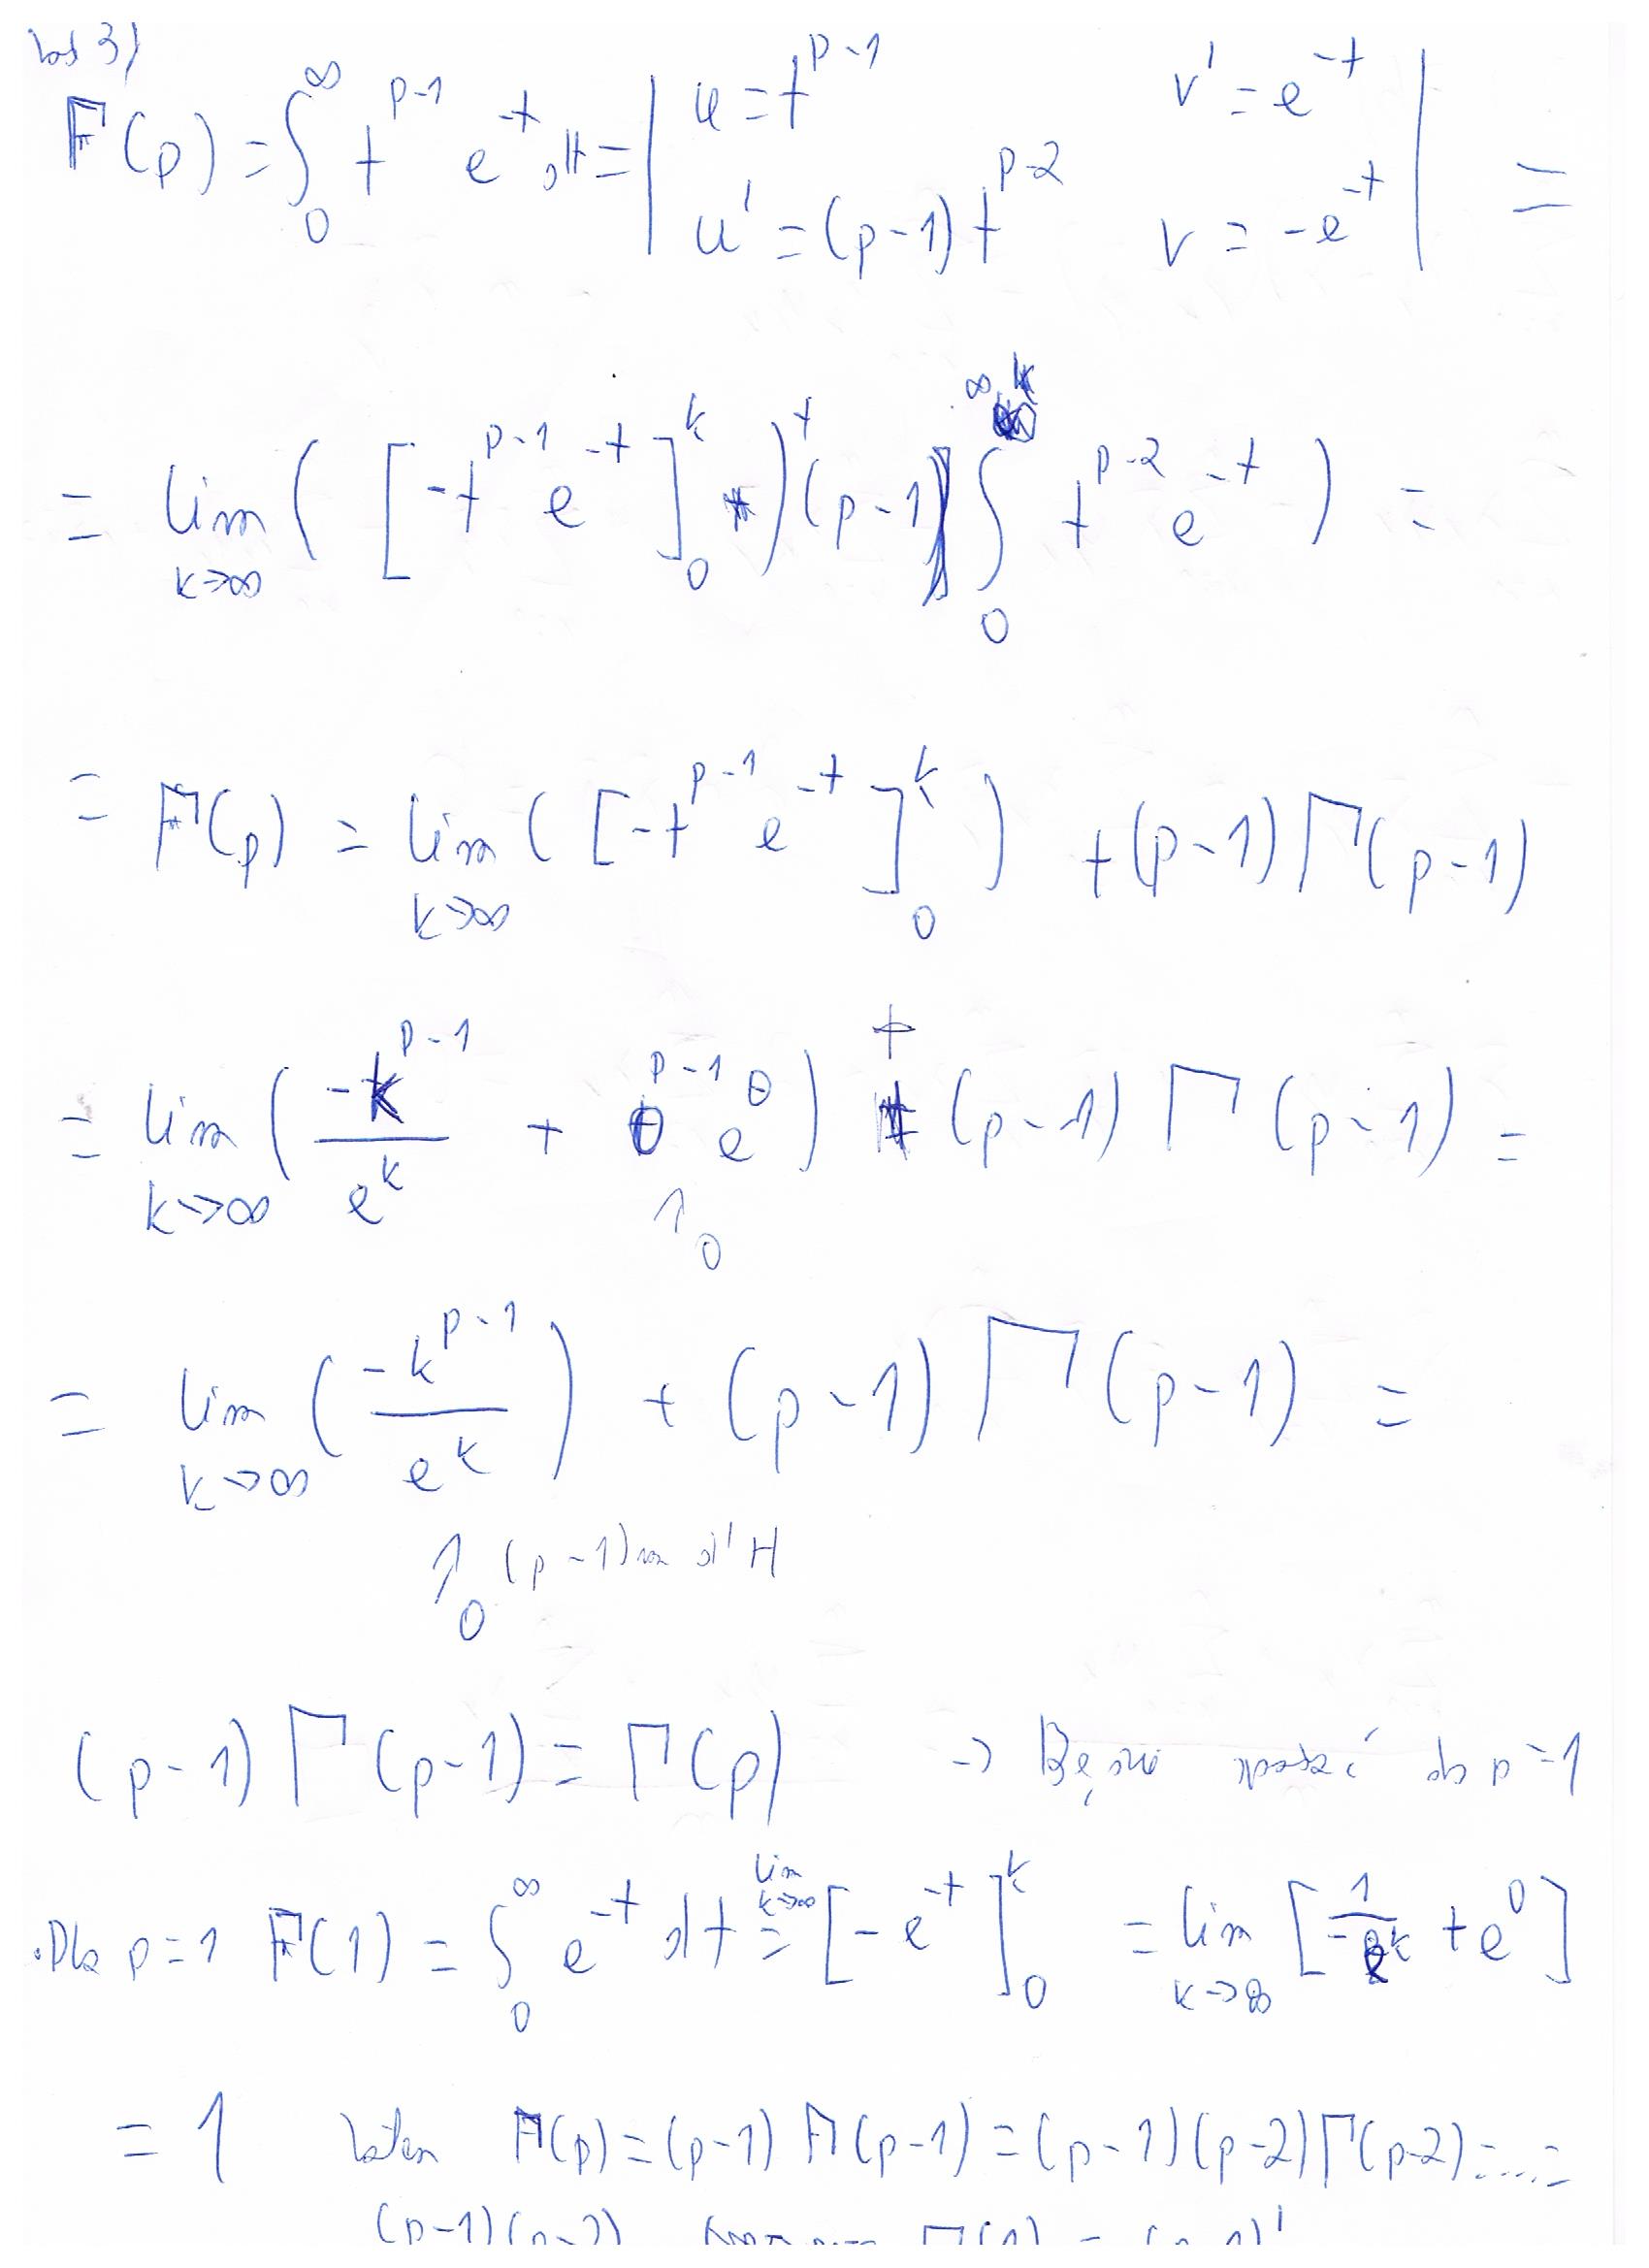 Zad 3)
Γ(p) = ∫₀^∞ t^(p-1) e^(-t) dt = | u = t^(p-1) v' = e^(-t)
u' = (p-1) t^(p-2) v = -e^(-t) | =
= lim_(k→∞) ( [-t^(p-1) e^(-t)]₀^k ) + (p-1) ∫₀^∞ t^(p-2) e^(-t) ) =
= Γ(p) = lim_(k→∞) ( [-t^(p-1) e^(-t)]₀^k ) + (p-1) Γ(p-1)
= lim_(k→∞) ( -k^(p-1) / e^k + 0^(p-1) e^0 ) + (p-1) Γ(p-1) =
↑ 0
= lim_(k→∞) ( -k^(p-1) / e^k ) + (p-1) Γ(p-1) =
↑ 0 (p-1) d'H
(p-1) Γ(p-1) = Γ(p) → Będzie do p=1
Dla p=1 Γ(1) = ∫₀^∞ e^(-t) dt = lim_(k→∞) [-e^(-t)]₀^k = lim_(k→∞) [ 1 / -e^k + e^0 ]
= 1 Zatem Γ(p) = (p-1) Γ(p-1) = (p-1)(p-2) Γ(p-2) = .... =
(p-1)(p-2) Γ(1) = (p-1)!